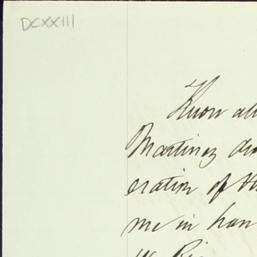 DCXXIII
Know al
Martinez an
eration of th
me in han